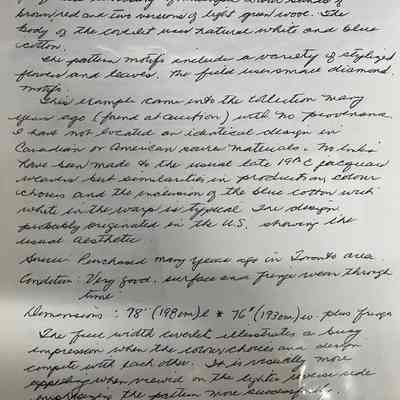 brown/red and two versions of light green wool. The
body of the coverlet uses natural white and blue
cotton.
The pattern motifs include a variety of stylized
flowers and leaves. The field uses small diamond
motifs.
This example came into the collection many
years ago (found at auction) with no provenance.
I have not located an identical design in
Canadian or American source materials. No links
have been made to the usual late 19th C jacquard
weavers but similarities in production, colour
choices and the inclusion of the blue cotton with
white in the warp is typical. The design
probably originated in the U.S. showing the
usual aesthetic
Source: Purchased many years ago in Toronto area.
Condition: Very good. surface and fringe wear through
time
Dimensions: 78" (198cm) l * 76" (193cm) w. plus fringe
The full width coverlet illustrates a busy
impression when the colour choices and design
compete with each other. It is visually more
appealing when viewed on the lighter reverse side
emphasizing the pattern more successfully.